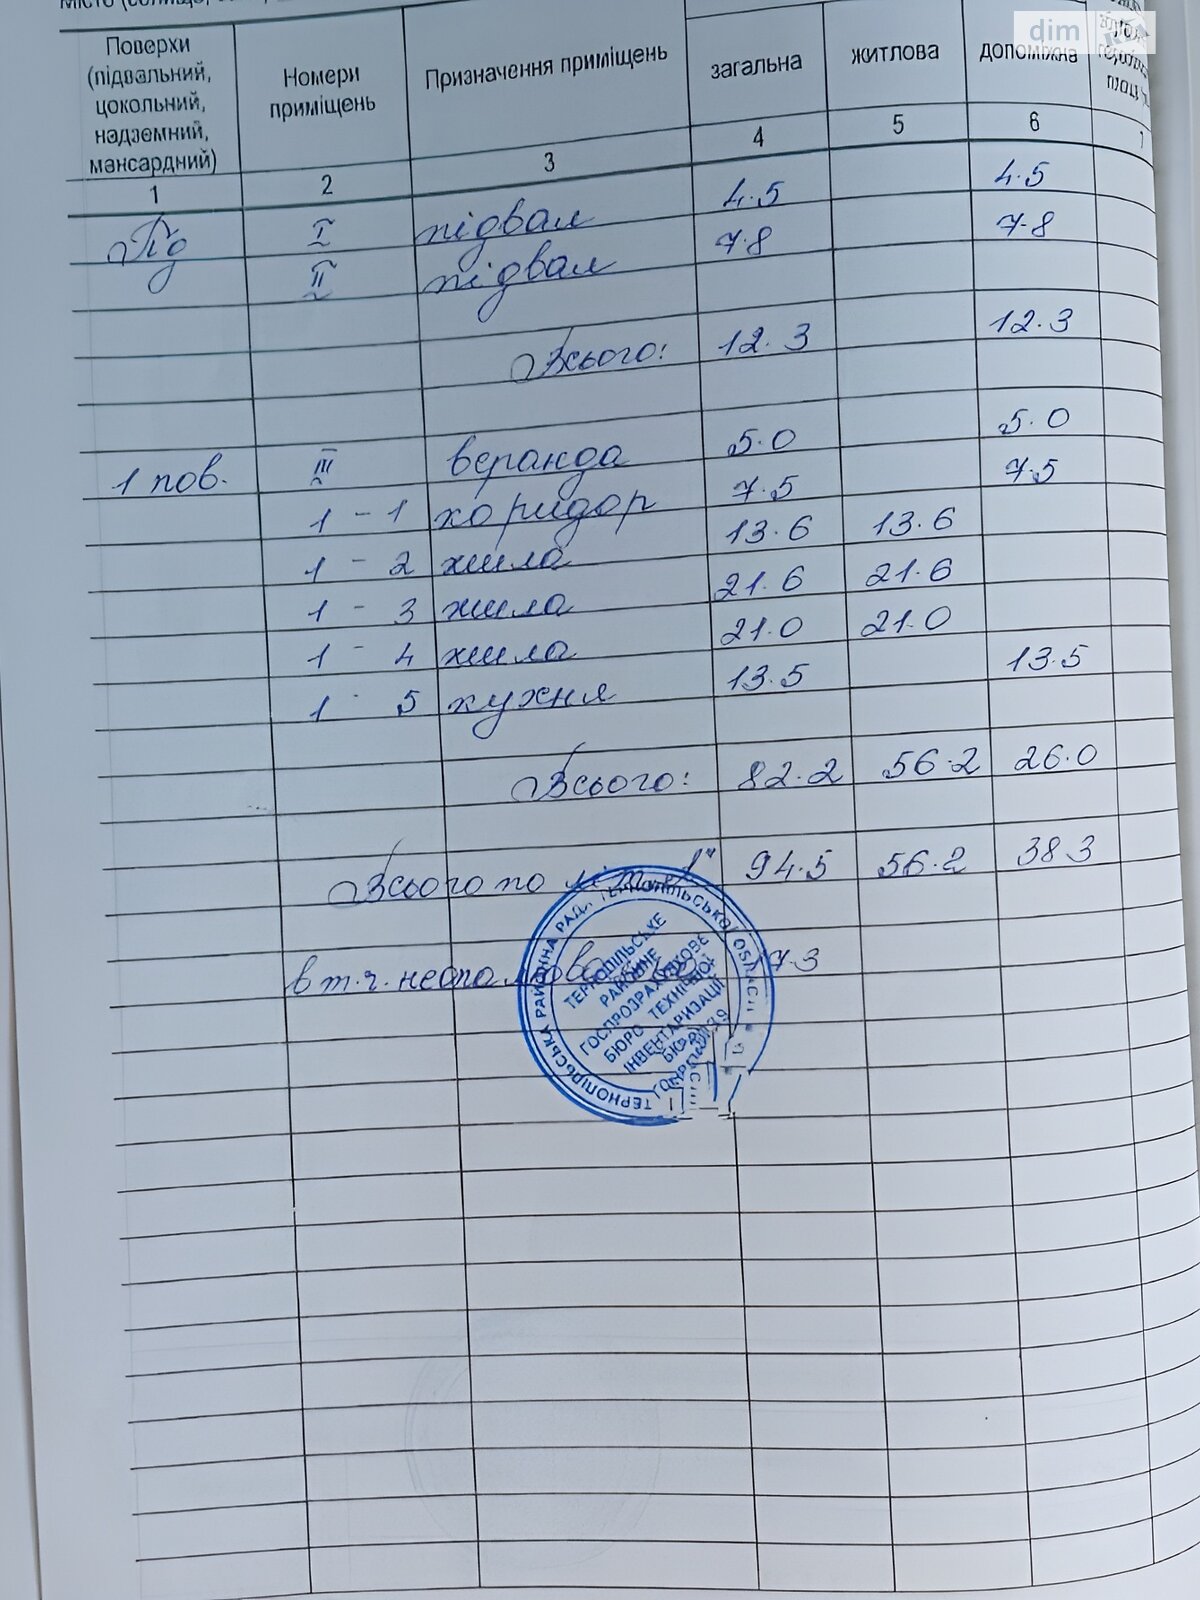 dim
Поверхи (підвальний, цокольний, надземний, мансардний) Номери приміщень Призначення приміщень загальна житлова допоміжна
1 2 3 4 5 6 7
Пд I підвал 4.5 4.5
II підвал 7.8 7.8
Всього: 12.3 12.3
1 пов. III веранда 5.0 5.0
1 - 1 коридор 7.5 7.5
1 - 2 жила 13.6 13.6
1 - 3 жила 21.6 21.6
1 - 4 жила 21.0 21.0
1 - 5 кухня 13.5 13.5
Всього: 82.2 56.2 26.0
Всього по 94.5 56.2 38.3
в т.ч. 17.3
ТЕРНОПІЛЬСЬКА РАЙОННА РАДА ТЕРНОПІЛЬСЬКОЇ
ТЕРНОПІЛЬСЬКЕ
РАЙОННЕ
ГОСПРОЗРАХУНКОВЕ
БЮРО ТЕХНІЧНОЇ
ІНВЕНТАРИЗАЦІЇ